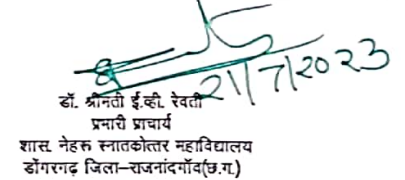 21/7/2023
डॉ. श्रीमती ई.व्ही. रेवती
प्रभारी प्राचार्य
शास. नेहरू स्नातकोत्तर महाविद्यालय
डोंगरगढ़ जिला–राजनांदगॉव(छ.ग.)